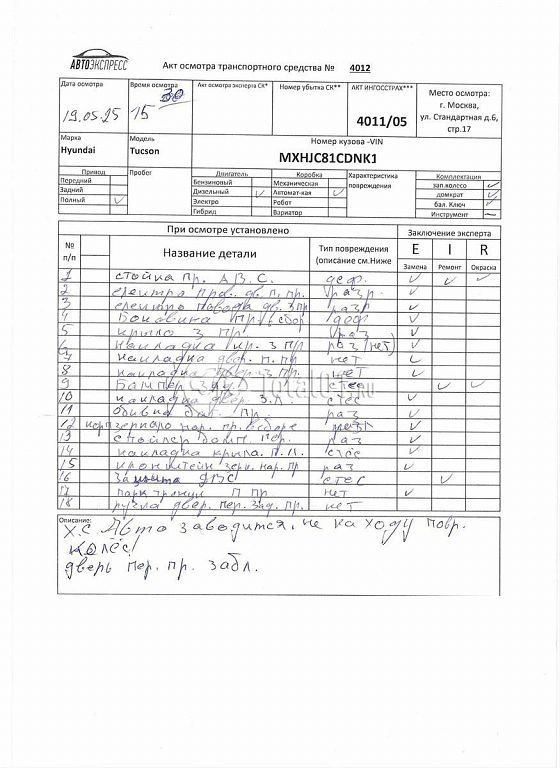 АВТОЭКСПРЕСС
Акт осмотра транспортного средства № 4012
Дата осмотра
19.05.25
Время осмотра
15 30
Акт осмотра эксперта СК*
Номер убытка СК**
АКТ ИНГОССТРАХ***
4011/05
Место осмотра:
г. Москва,
ул. Стандартная д.6,
стр.17
Марка
Hyundai
Модель
Tucson
Номер кузова -VIN
MXHJC81CDNK1
Привод
Передний
Задний
Полный ✓
Пробег
Двигатель
Бензиновый
Дизельный ✓
Электро
Гибрид
Коробка
Механическая
Автомат-кая ✓
Робот
Вариатор
Характеристика
повреждения
Комплектация
зап.колесо ✓
домкрат ✓
бал. Ключ ✓
Инструмент —
При осмотре установлено
Заключение эксперта
№ п/п
Название детали
Тип повреждения
(описание см.Ниже
E I R
Замена Ремонт Окраска
1 стойка пр. А.В.С. деф. ✓ ✓ ✓
2 электро дв. п. пр. разр. ✓
3 электро дв. з пр разр ✓
4 Боковина пр. в сбор деф ✓
5 крыло з пр раз ✓
6 накладка кр. з пр раз (нет) ✓
7 накладка двер. п. пр нет ✓
8 накладка двер з пр. нет ✓
9 Бампер зад. стес ✓ ✓ ✓
10 накладка двер. з.л. стес ✓
11 обивка баг. пр. раз ✓
12 зеркало нар. пр. в сборе разр ✓
13 спойлер бамп. пер. раз ✓
14 накладка крыла. п.л. стес ✓
15 кронштейн зерк. нар. пр раз ✓
16 защита ДВС стес ✓
17 парктроник п пр нет ✓
18 ручка двер. пер. зад. пр. нет
Описание:
Х.С Авто заводится, не на ходу повр.
колёс!
дверь пер. пр. забл.